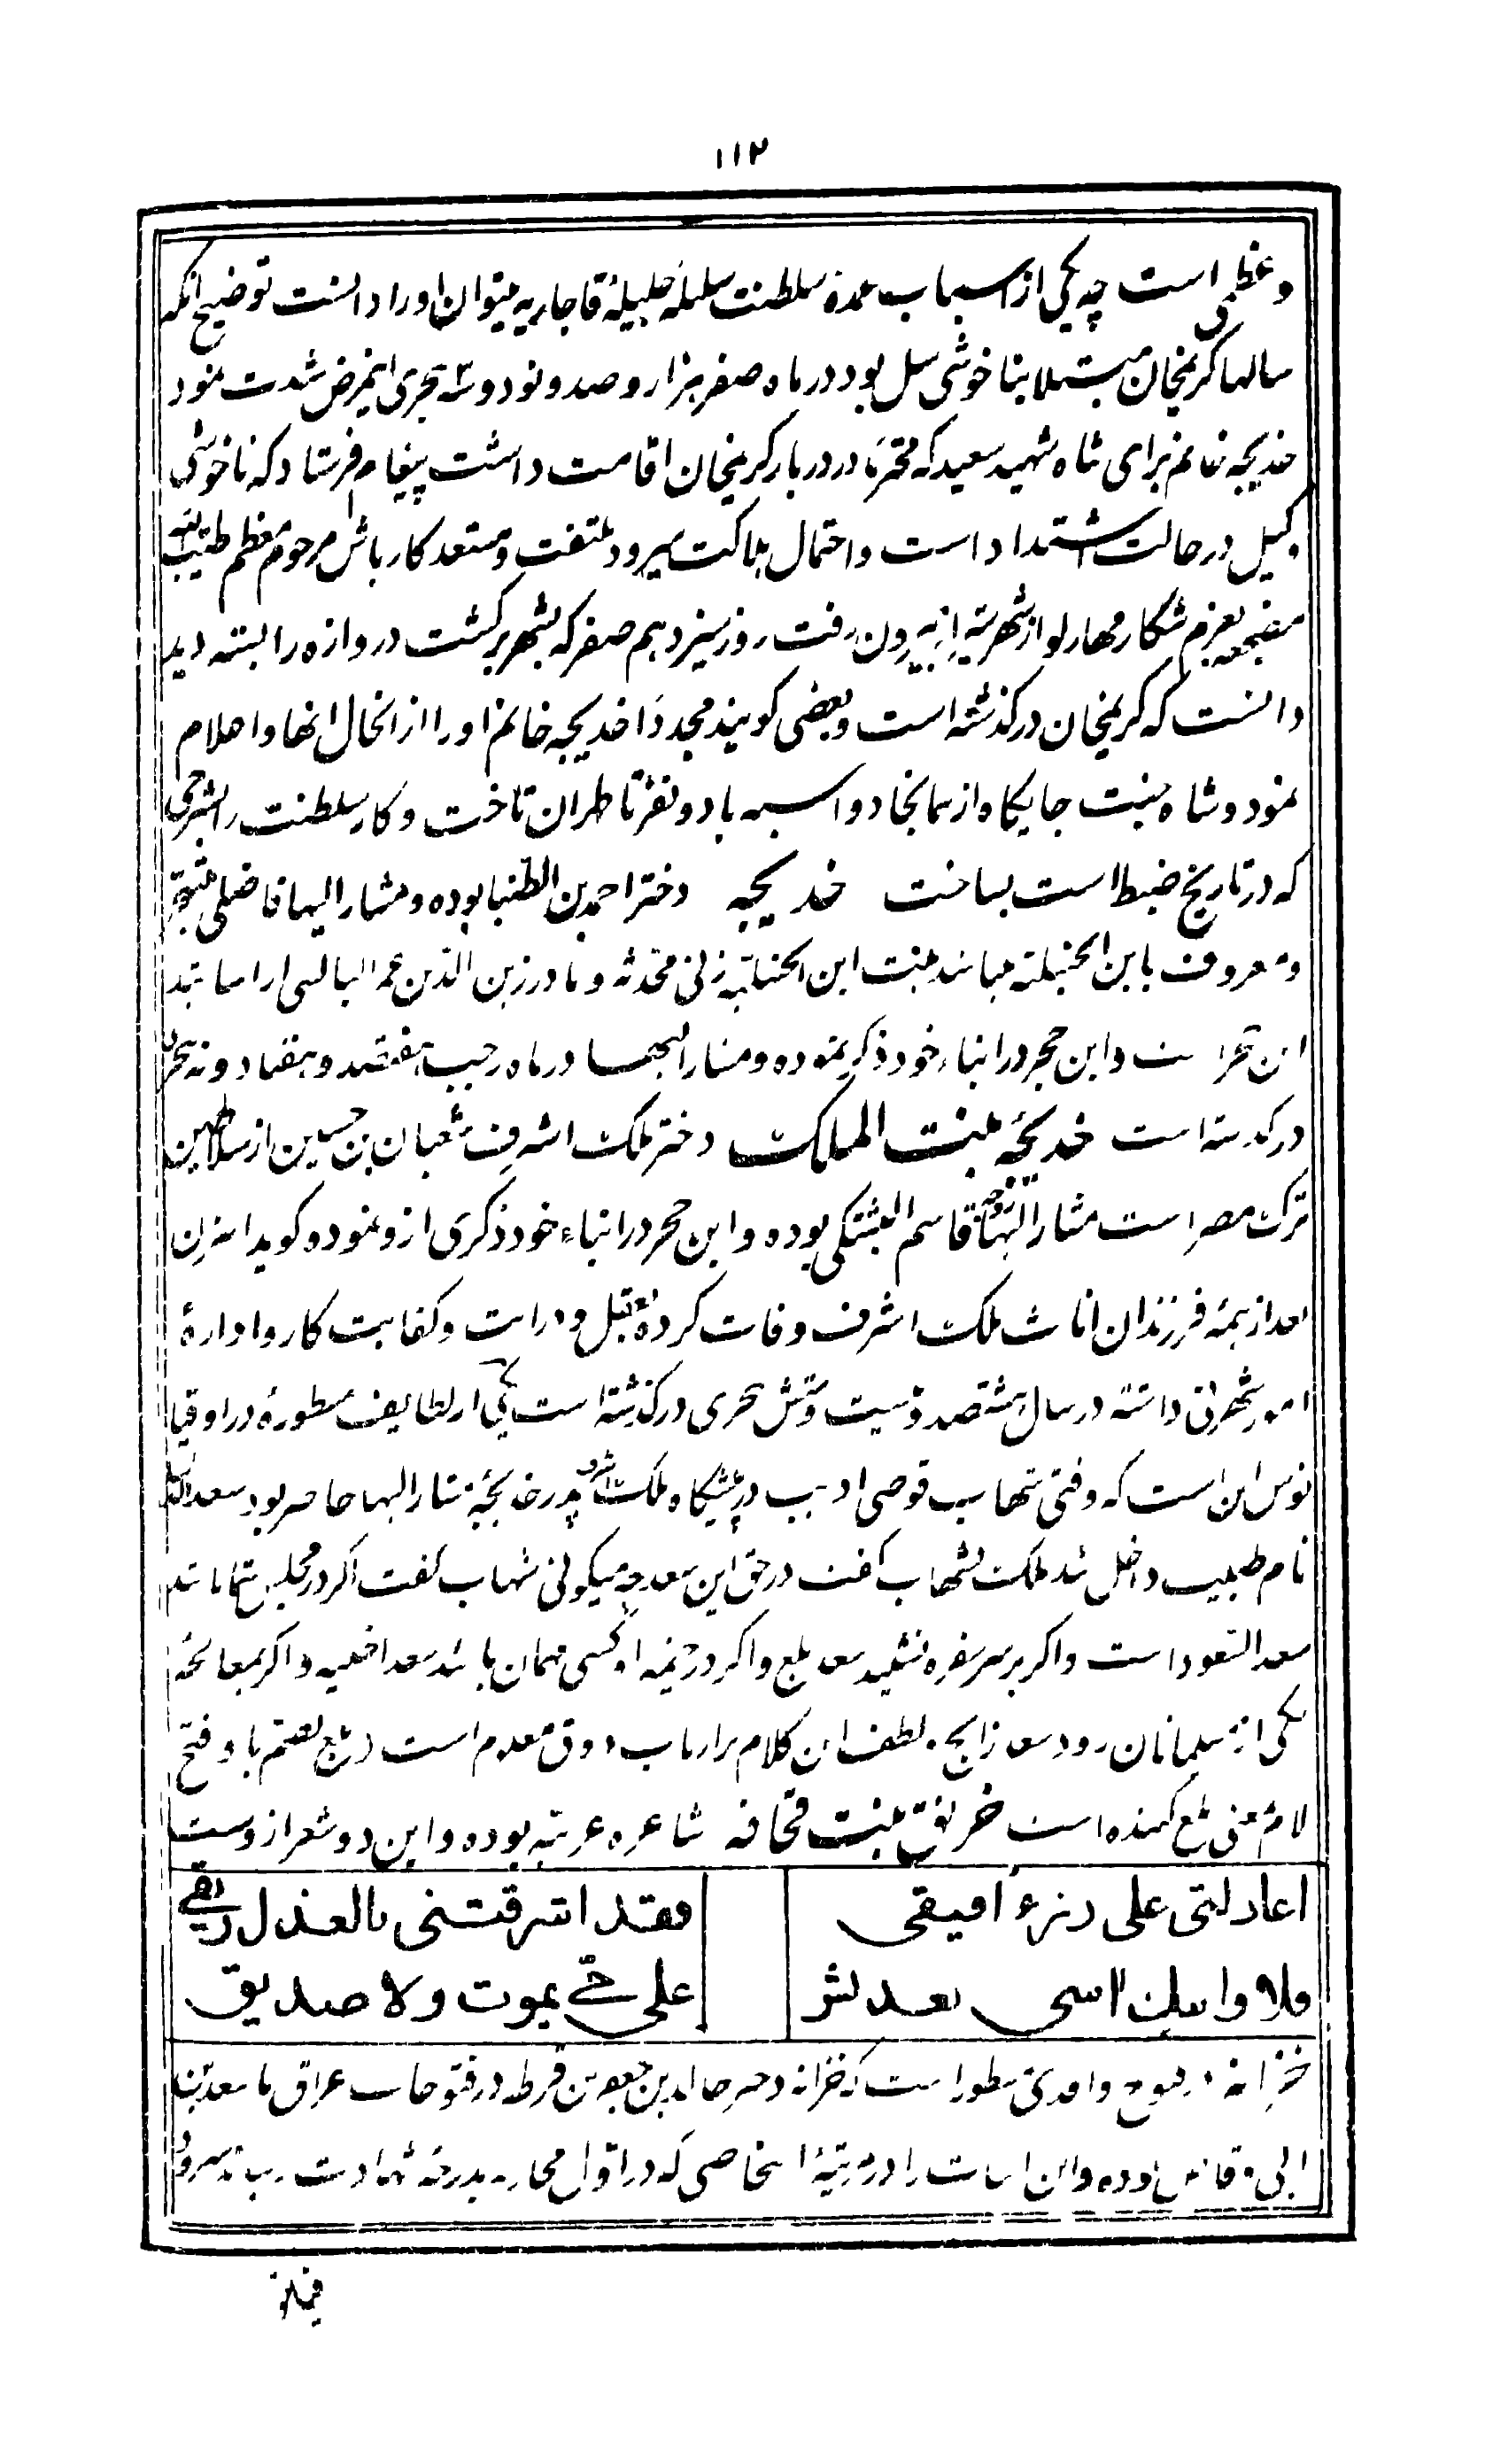 ۱۱۲
و عظمی است چه یکی از اسباب عمده سلطنت سلسله جلیلهٔ قاجاریه میتوان او را دانست توضیح انکه
سالها کریمخان مبتلا بناخوشی سل بود در ماه صفر هزار و صد و نود و سه هجری اینمرض شدت نمود
خدیجه خانم برای شاه شهید سعید که محترما در دربار کریمخان اقامت داشت پیغام فرستاد که ناخوشی
وکیل در حالت اشتداد است و احتمال هلاکت میرود ملتفت و مستعد کار باش مرحوم معظم طیب الله
مضجعه بعزم شکار مهارلو از شهر شیراز بیرون رفت روز سیزدهم صفر که بشهر برگشت دروازه را بسته دید
دانست که کریمخان درگذشته است و بعضی گویند مجددا خدیجه خانم او را از انحال انها و اعلام
نمود و شاه جنت جایگاه از همانجا دو اسبه با دو نفر تا طهران تاخت و کار سلطنت را بشرحی
که در تاریخ ضبط است بساخت خدیجه دختر احمد بن الطنبا بوده و مشار الیها فاضلی متبحر
و معروف بابن الحنبلیه میباشد بنت ابن الحنابلیه زنی محدثه و مادر زین الدین عمر البالسی از اساتید
ابن حجر است و ابن حجر در انباء خود ذکر نموده و مشار الیها در ماه رجب هفتصد و هفتاد و نه هجری
درگذشته است خدیجهٔ بنت الملک دختر ملک اشرف شعبان بن حسین از سلاطین
ترک مصر است مشار الیها زوجه قاسم البشتکی بوده و ابن حجر در انباء خود ذکری از و نموده گوید این زن
بعد از همه فرزندان اناث ملک اشرف وفات کرده بعقل و درایت و کفایت کار و ادارهٔ
امور شهرتی داشته در سال هشتصد و بیست و شش هجری درگذشته است یکی از لطایف مسطورهٔ در اوقیا
نوس این است که وقتی شهاب قوصی ادیب در پیشگاه ملک اشرف پدر خدیجهٔ مشار الیها حاضر بود سعد الدین
نام طبیب داخل شد ملک بشهاب گفت در حق این سعد چه میگوئی شهاب گفت اگر در مجلس شما باشد
سعد السعود است و اگر بر سر سفره نشیند سعد بلع و اگر در خیمه او کسی مهمان باشد سعد اخبیه و اگر بمعالجهٔ
یکی از مسلمانان رود سعد ذابح لطف این کلام بر ارباب ذوق معلوم است (بلع بضم با و فتح
لام بمعنی بلع کننده است خرنق بنت قحافه شاعره عربیه بوده و این دو شعر از وست
اعاذلتی علی رزء افیقی فقد اشرقتنی بالعذل ریقی
فلا وابیک اسی بعد بشر علی حی یموت ولا صدیق
خزانه در فتوح واقدی مسطور است که خزانه دختر خالد بن جعفر بن قرط در فتوحات عراق با سعد بن
ابی وقاص بوده و این ابیات را در مرثیهٔ اشخاصی که در اول محاربه بدرجه شهادت رسیدند سروده